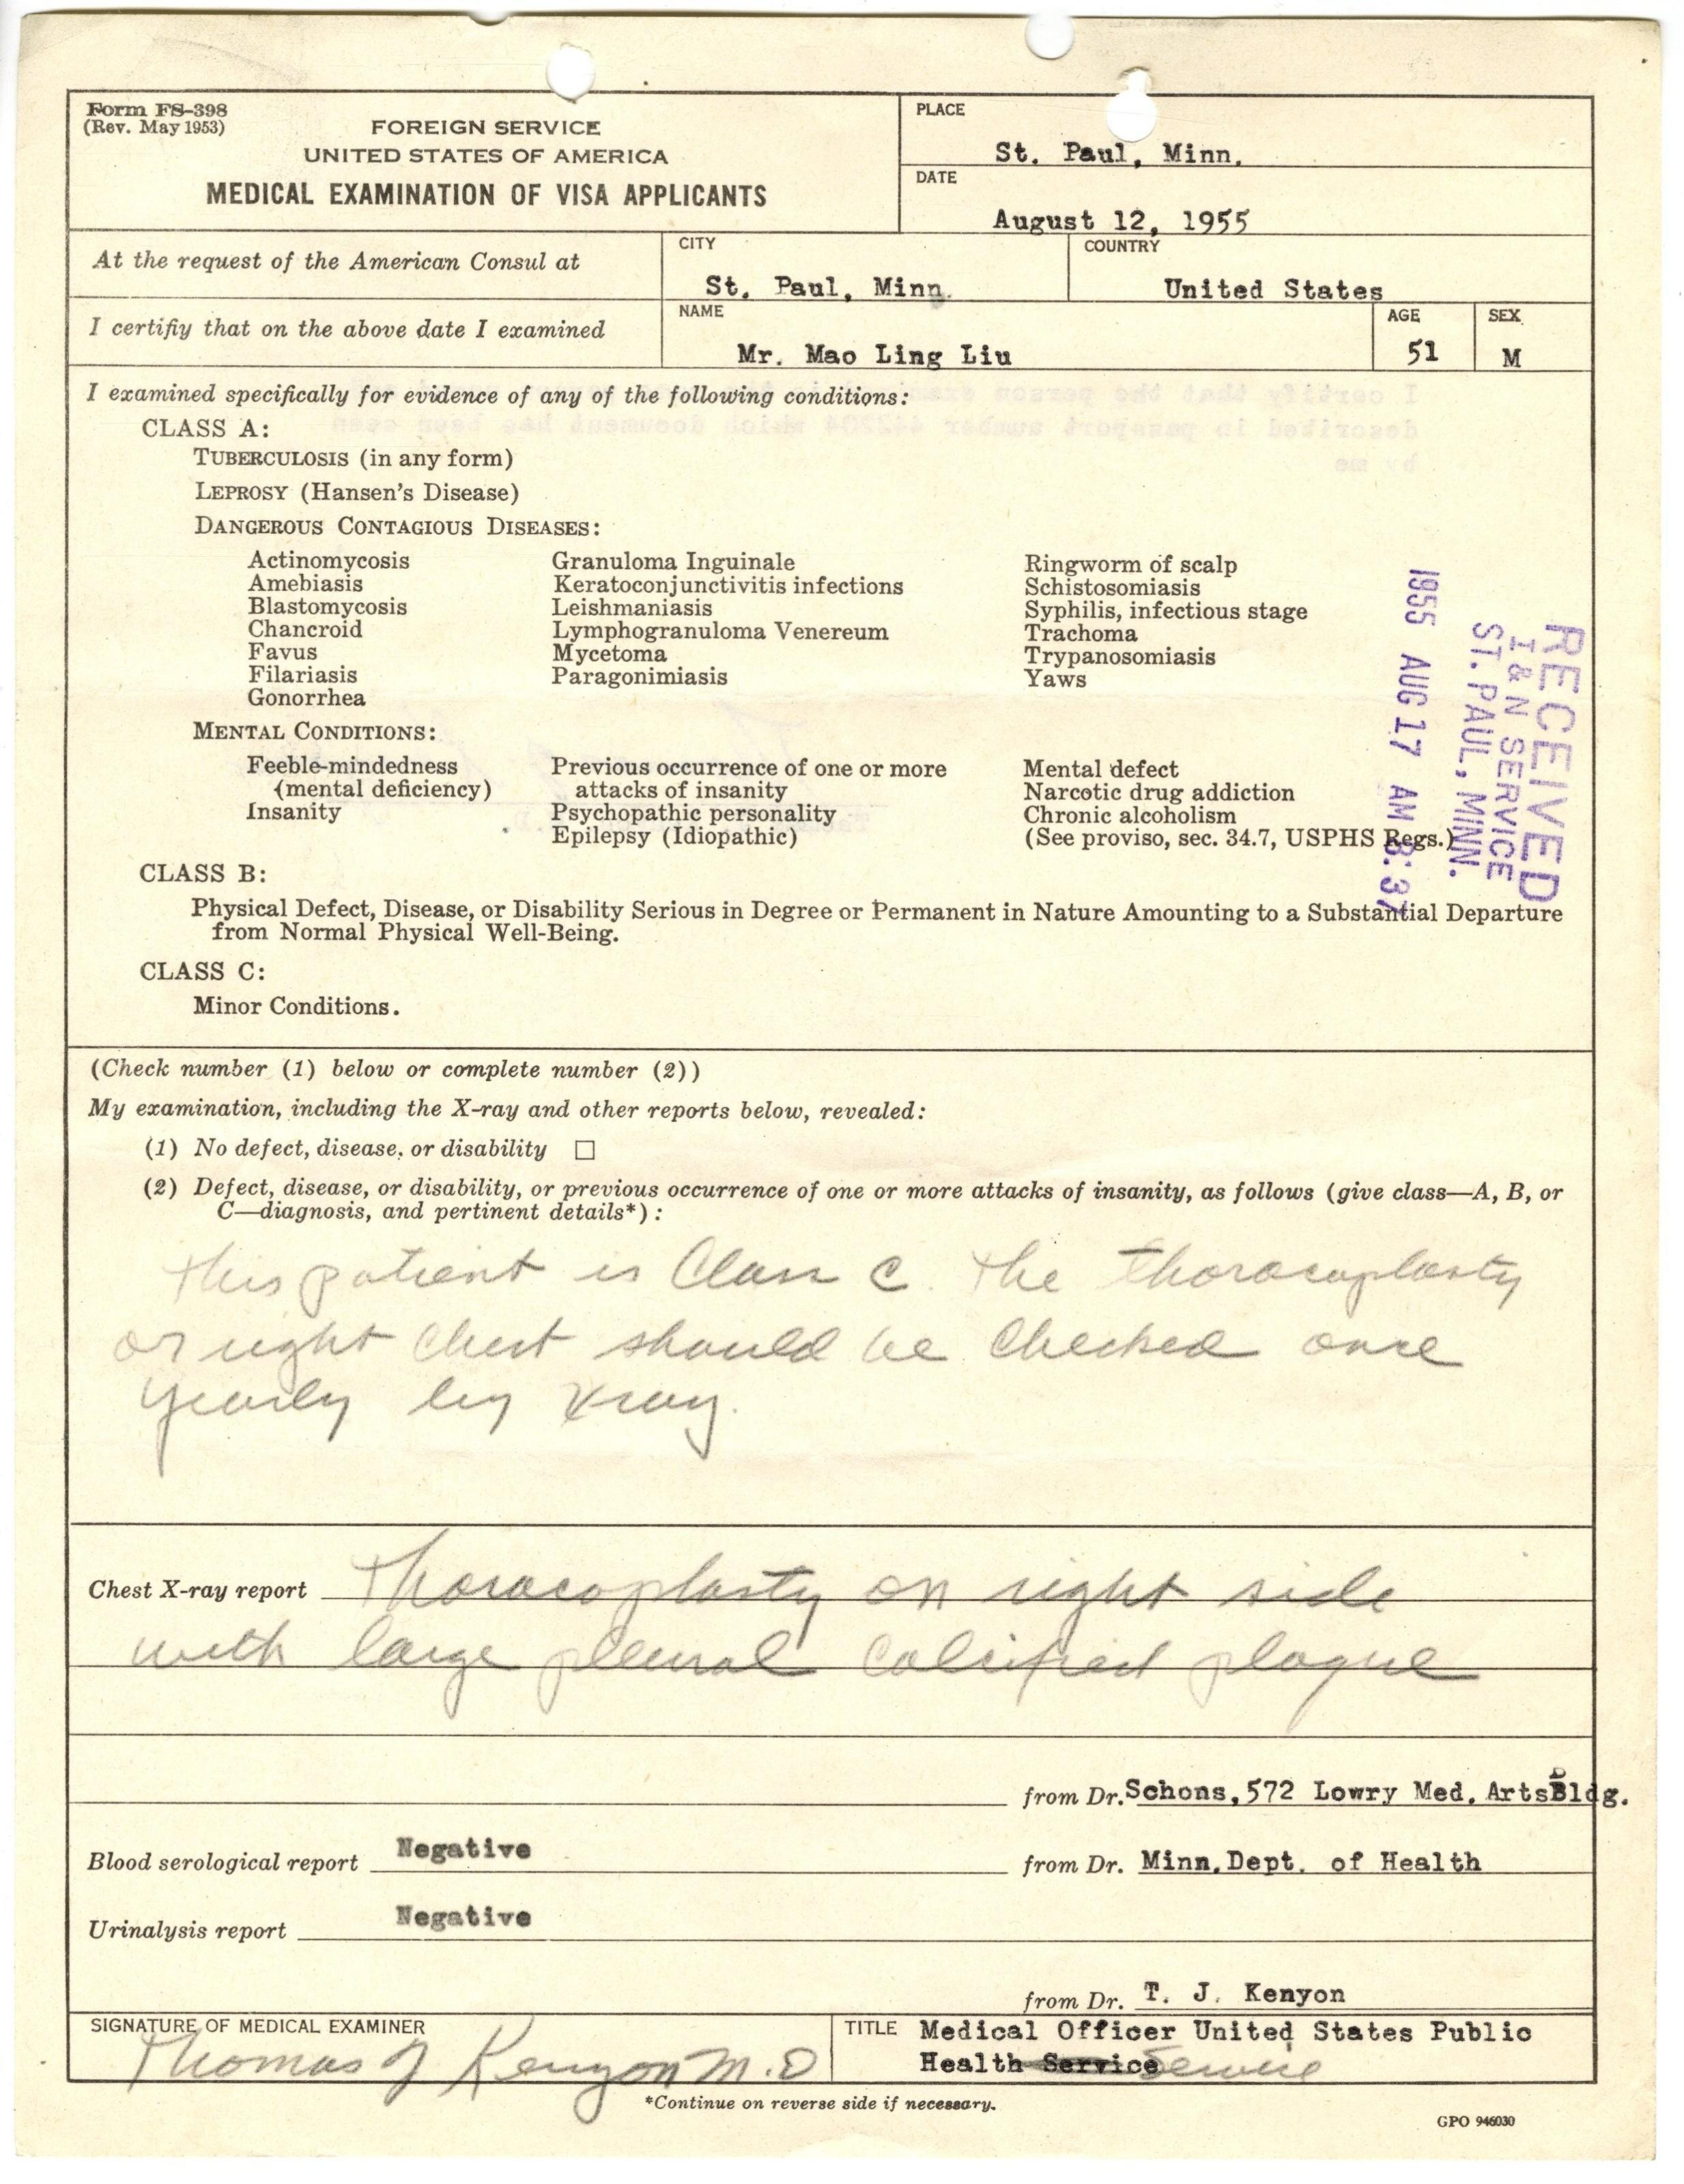 Form FS-398
(Rev. May 1953)
FOREIGN SERVICE
UNITED STATES OF AMERICA
MEDICAL EXAMINATION OF VISA APPLICANTS
PLACE
St. Paul, Minn.
DATE
August 12, 1955
At the request of the American Consul at
CITY
St. Paul, Minn.
COUNTRY
United States
I certifiy that on the above date I examined
NAME
Mr. Mao Ling Liu
AGE
51
SEX
M
I examined specifically for evidence of any of the following conditions:
I certify that the person
described in passport number 442204 which document has been seen
by me
CLASS A:
TUBERCULOSIS (in any form)
LEPROSY (Hansen's Disease)
DANGEROUS CONTAGIOUS DISEASES:
Actinomycosis
Amebiasis
Blastomycosis
Chancroid
Favus
Filariasis
Gonorrhea
Granuloma Inguinale
Keratoconjunctivitis infections
Leishmaniasis
Lymphogranuloma Venereum
Mycetoma
Paragonimiasis
Ringworm of scalp
Schistosomiasis
Syphilis, infectious stage
Trachoma
Trypanosomiasis
Yaws
MENTAL CONDITIONS:
Feeble-mindedness
(mental deficiency)
Insanity
Previous occurrence of one or more
attacks of insanity
Psychopathic personality
Epilepsy (Idiopathic)
Mental defect
Narcotic drug addiction
Chronic alcoholism
(See proviso, sec. 34.7, USPHS Regs.)
RECEIVED
I & N SERVICE
ST. PAUL, MINN.
1955 AUG 17 AM 8:37
CLASS B:
Physical Defect, Disease, or Disability Serious in Degree or Permanent in Nature Amounting to a Substantial Departure
from Normal Physical Well-Being.
CLASS C:
Minor Conditions.
(Check number (1) below or complete number (2))
My examination, including the X-ray and other reports below, revealed:
(1) No defect, disease, or disability ☐
(2) Defect, disease, or disability, or previous occurrence of one or more attacks of insanity, as follows (give class—A, B, or
C—diagnosis, and pertinent details*):
This patient is Class C. The thoracoplasty
or right chest should be checked once
yearly by xray.
Chest X-ray report Thoracoplasty on right side
with large pleural calcified plaque
from Dr. Schons, 572 Lowry Med. Arts Bldg.
Blood serological report Negative
from Dr. Minn. Dept. of Health
Urinalysis report Negative
from Dr. T. J. Kenyon
SIGNATURE OF MEDICAL EXAMINER
Thomas J Kenyon M.D
TITLE Medical Officer United States Public
Health Service Service
*Continue on reverse side if necessary.
GPO 946030